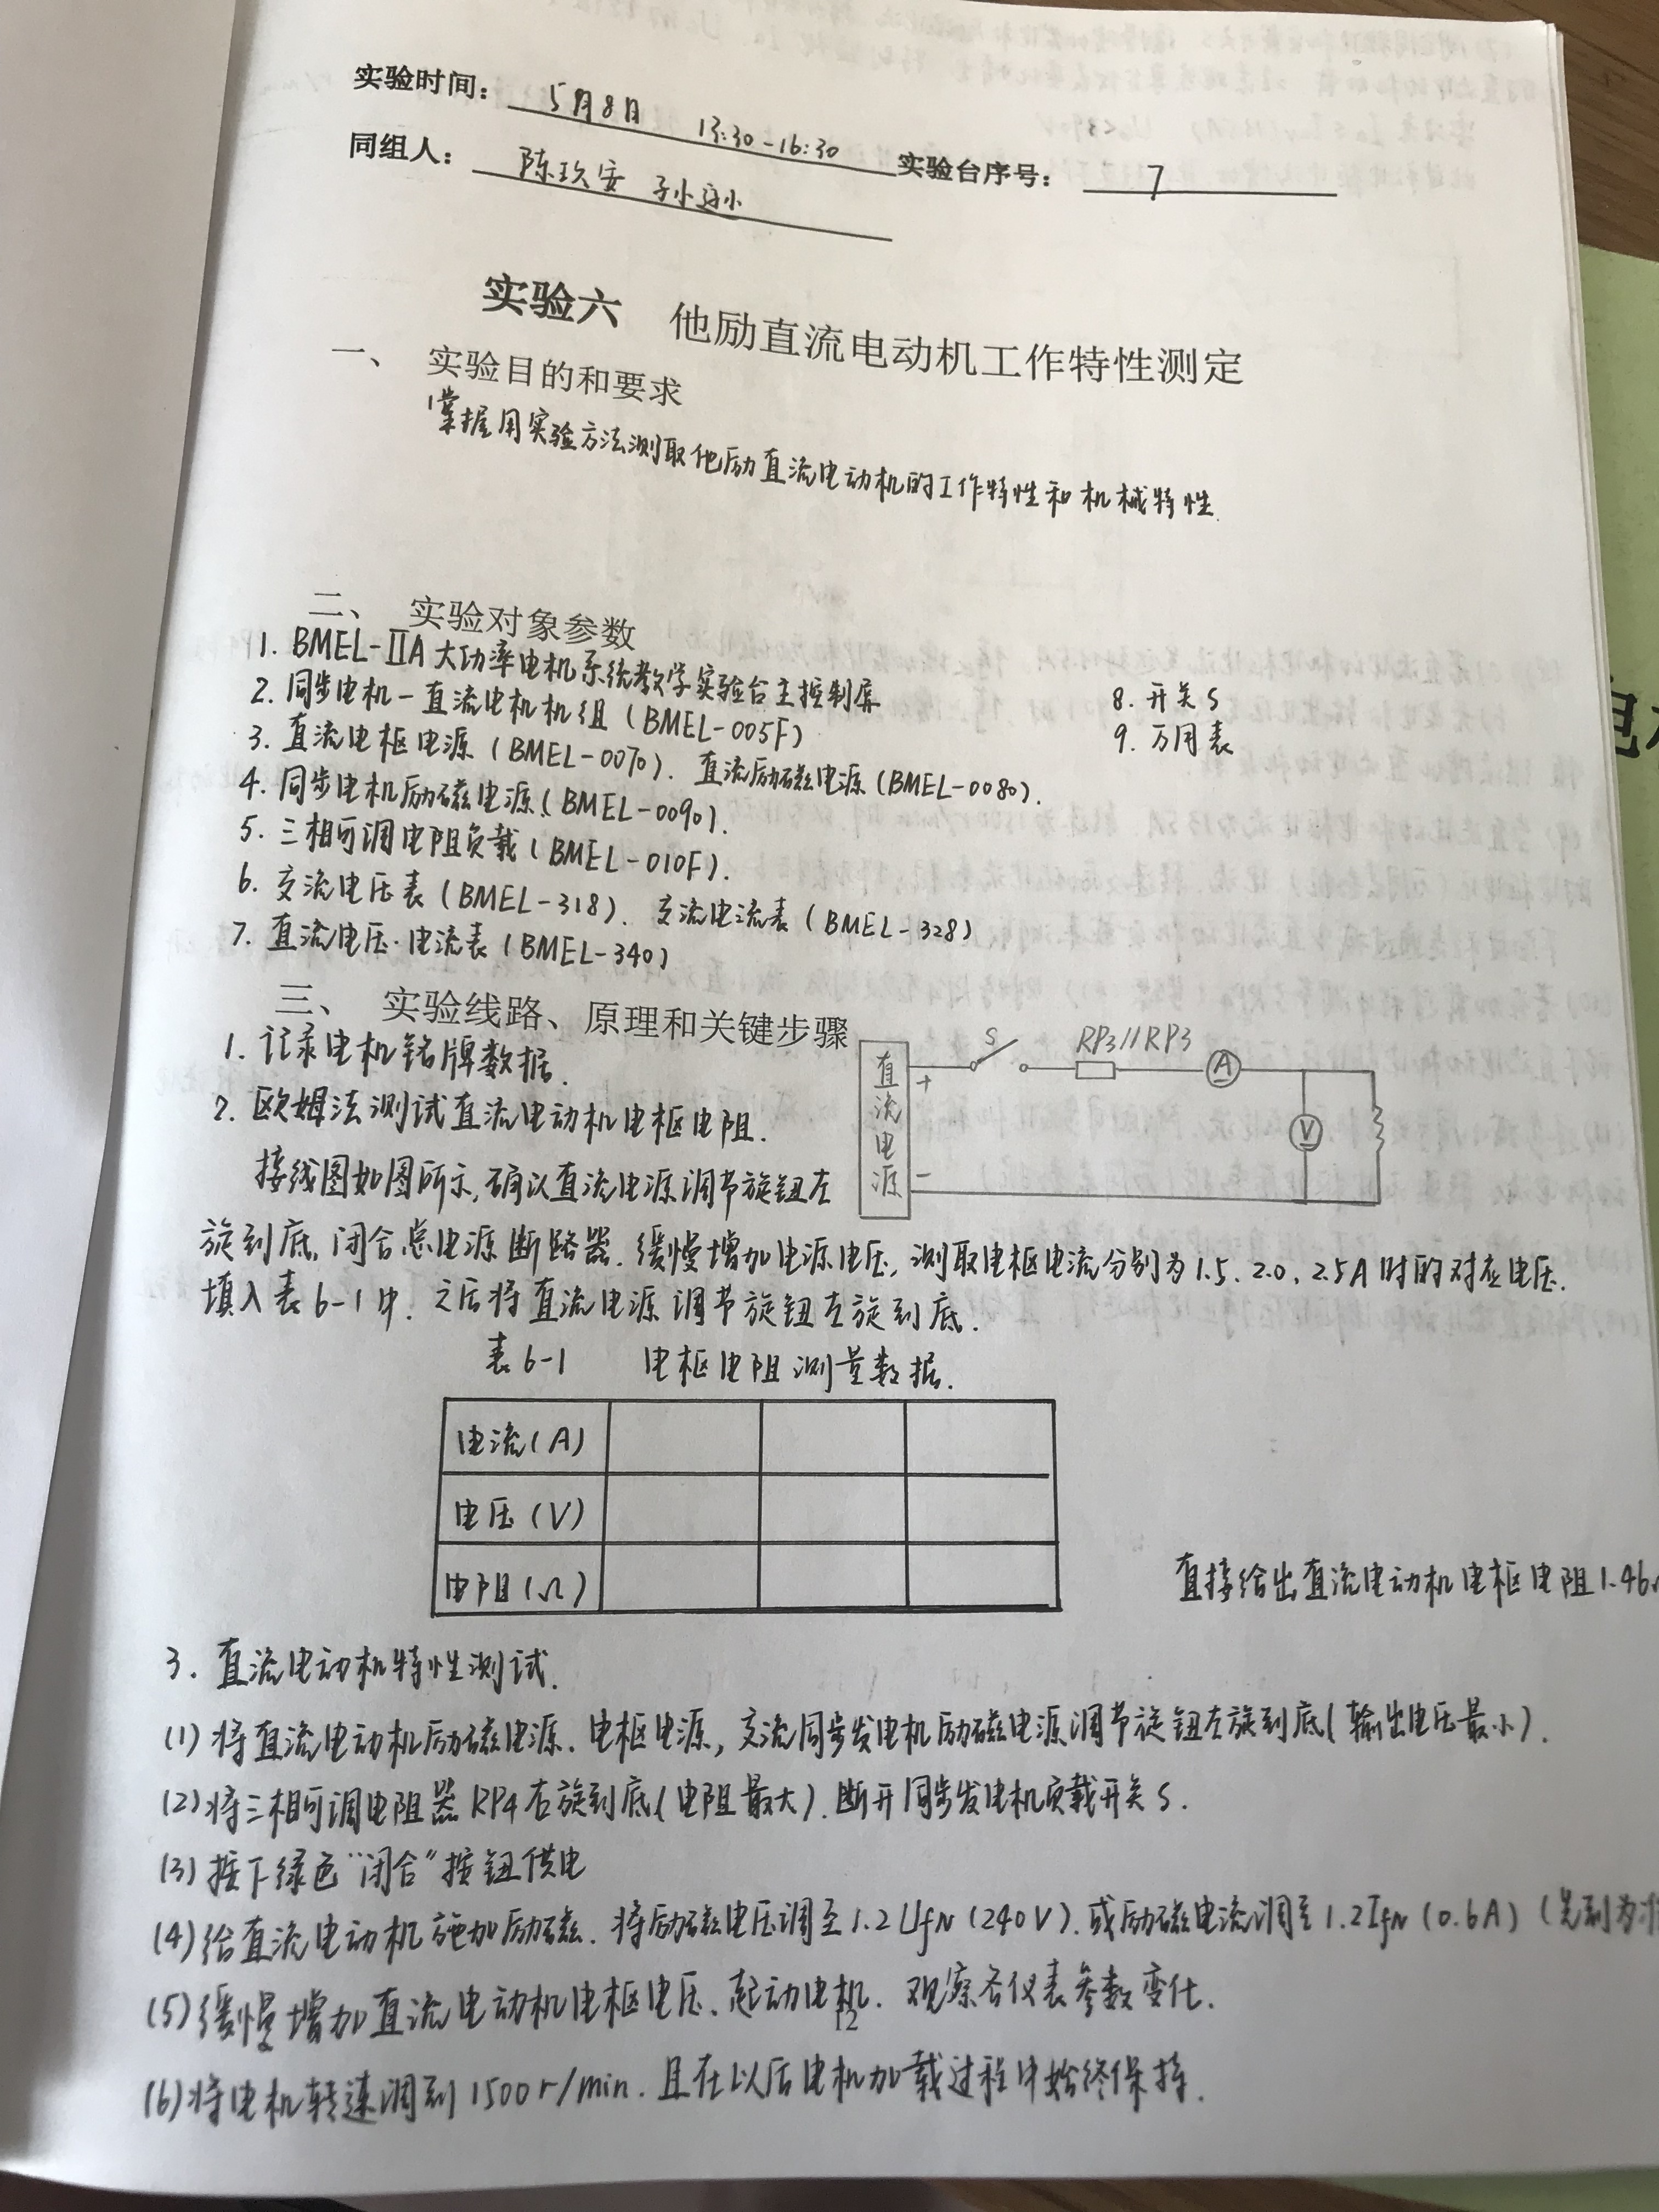 实验时间： 5月8日 13:30-16:30
同组人： 陈玖安 实验台序号： 7
实验六 他励直流电动机工作特性测定
一、 实验目的和要求
掌握用实验方法测取他励直流电动机的工作特性和机械特性.
二、 实验对象参数
1. BMEL-ⅡA大功率电机系统教学实验台主控制屏
2. 同步电机-直流电机机组（BMEL-005F）
3. 直流电枢电源（BMEL-0070）. 直流励磁电源（BMEL-0080）.
4. 同步电机励磁电源（BMEL-0090）.
5. 三相可调电阻负载（BMEL-010F）.
6. 交流电压表（BMEL-318）. 交流电流表（BMEL-328）
7. 直流电压·电流表（BMEL-340）
8. 开关S
9. 万用表
三、 实验线路、原理和关键步骤
1. 记录电机铭牌数据.
2. 欧姆法测试直流电动机电枢电阻.
接线图如图所示, 确认直流电源调节旋钮左
旋到底, 闭合总电源断路器. 缓慢增加电源电压, 测取电枢电流分别为1.5、2.0、2.5A时的对应电压.
填入表6-1中. 之后将直流电源调节旋钮左旋到底.
直流电源
+
-
S
RP3//RP3
A
V
表6-1 电枢电阻测量数据.
电流(A)
电压(V)
电阻(Ω)
直接给出直流电动机电枢电阻1.46
3. 直流电动机特性测试.
(1) 将直流电动机励磁电源、电枢电源, 交流同步发电机励磁电源调节旋钮左旋到底(输出电压最小).
(2) 将三相可调电阻器RP4右旋到底(电阻最大). 断开同步发电机负载开关S.
(3) 按下绿色"闭合"按钮供电
(4) 给直流电动机施加励磁. 将励磁电压调至1.2UfN(240V). 或励磁电流调至1.2IfN(0.6A)(先到为
(5) 缓慢增加直流电动机电枢电压、起动电机. 观察各仪表参数变化.
12
(6) 将电机转速调到1500r/min. 且在以后电机加载过程中始终保持.